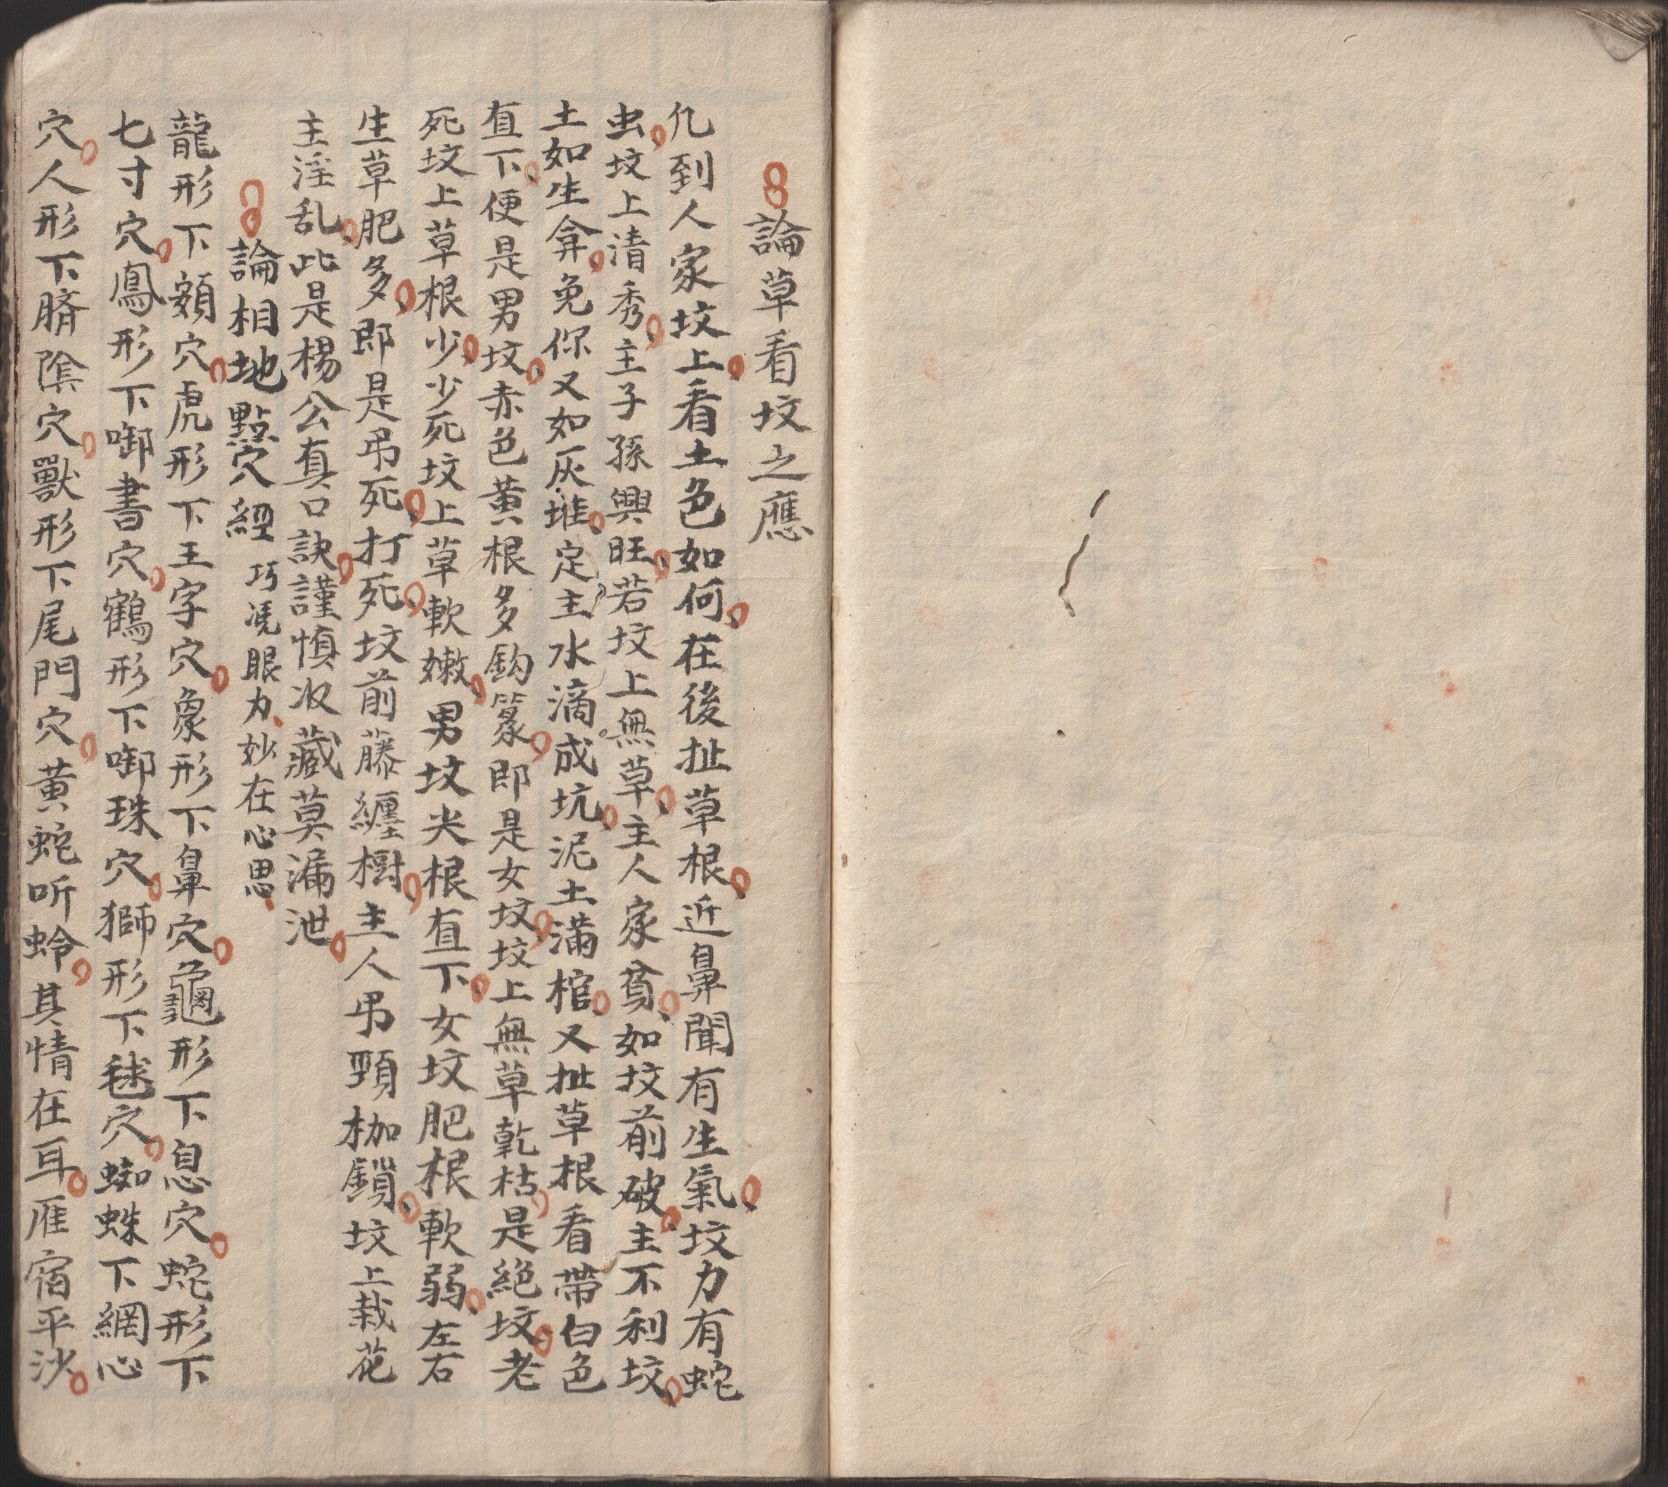 論草看坟之應
凢到人家坟上看土色如何在後扯草根近鼻聞有生氣坟力有蛇
虫坟上清秀主子孫興旺若坟上無草主人家貧如坟前破主不利坟
土如生弇免保又如灰堆定主水滴成坑泥土滿棺又扯草根看帶白色
直下便是男坟赤色黄根多鈎篆即是女坟坟上無草乾枯是絕坟老
死坟上草根少少死坟上草軟嫩男坟尖根直下女坟肥根軟弱左右
生草肥多即是弔死打死坟前藤纏樹主人弔頸枷鎖坟上栽花
主淫乱此是楊公真口訣謹慎收藏莫漏泄
論相地點穴經 巧凴眼力妙在心思
龍形下額穴虎形下王字穴象形下鼻穴龜形下息穴蛇形下
七寸穴鳳形下啣書穴鶴形下啣珠穴獅形下毬穴蜘蛛下網心
穴人形下臍陰穴獸形下尾門穴黄蛇听蛉其情在耳雁宿平沙